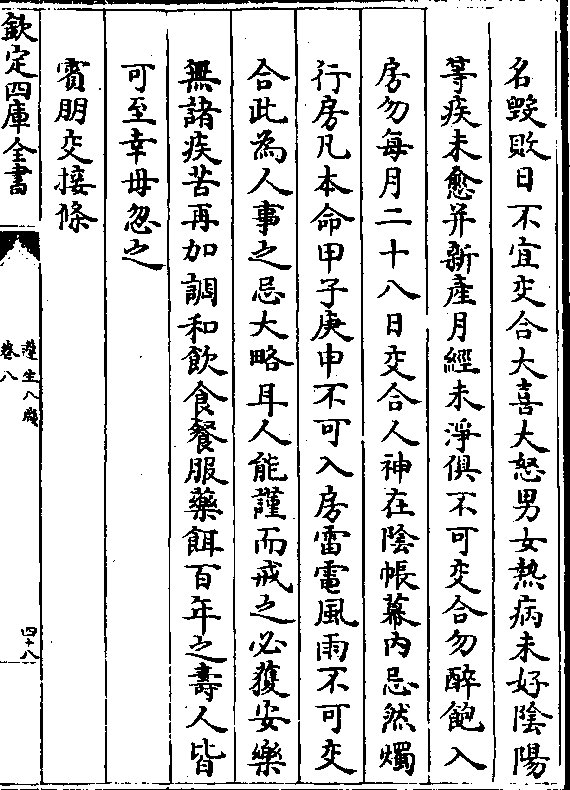 名毀敗日不宜交合大喜大怒男女熱病未好陰陽
等疾未愈并新產月經未淨俱不可交合勿醉飽入
房勿每月二十八日交合人神在陰帳幕內忌然燭
行房凡本命甲子庚申不可入房雷電風雨不可交
合此為人事之忌大略耳人能謹而戒之必獲安樂
無諸疾苦再加調和飲食餐服藥餌百年之壽人皆
可至幸毋忽之
賓朋交接條
欽定四庫全書
遵生八牋
卷八
四十八